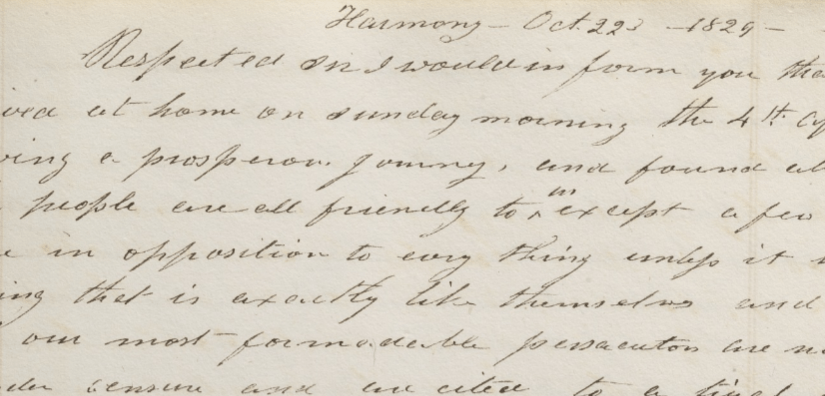 Harmony — Oct. 22d — 1829 —
Respected Sir I would in form you tha
ived at home on sunday morning the 4th af
ving a prosperous journey, and found al
people are all friendly to us except a few
e in opposition to evry thing unless it
ing that is axactly like themselves and
our most formadable persacutors are n
der censure and are cited to a tryal